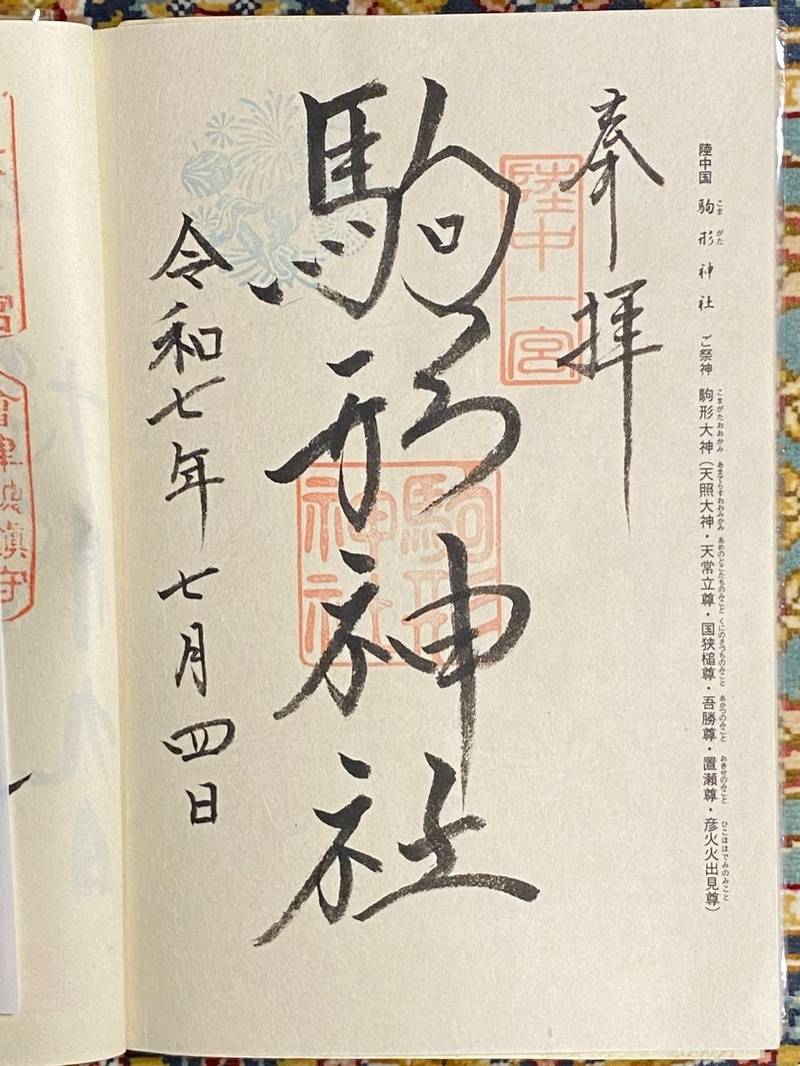 陸中国 駒形神社 ご祭神 駒形大神(天照大神・天常立尊・国狭槌尊・吾勝尊・置瀬尊・彦火火出見尊)
こま がた こまがたおおかみ あまてらすおおみかみ あめのとこたちのみこと くにのさつちのみこと あかつのみこと おきせのみこと ひこほほでみのみこと
奉拝
陸中一宮
駒形神社
駒形
神社
令和七年七月四日
會津總鎮守